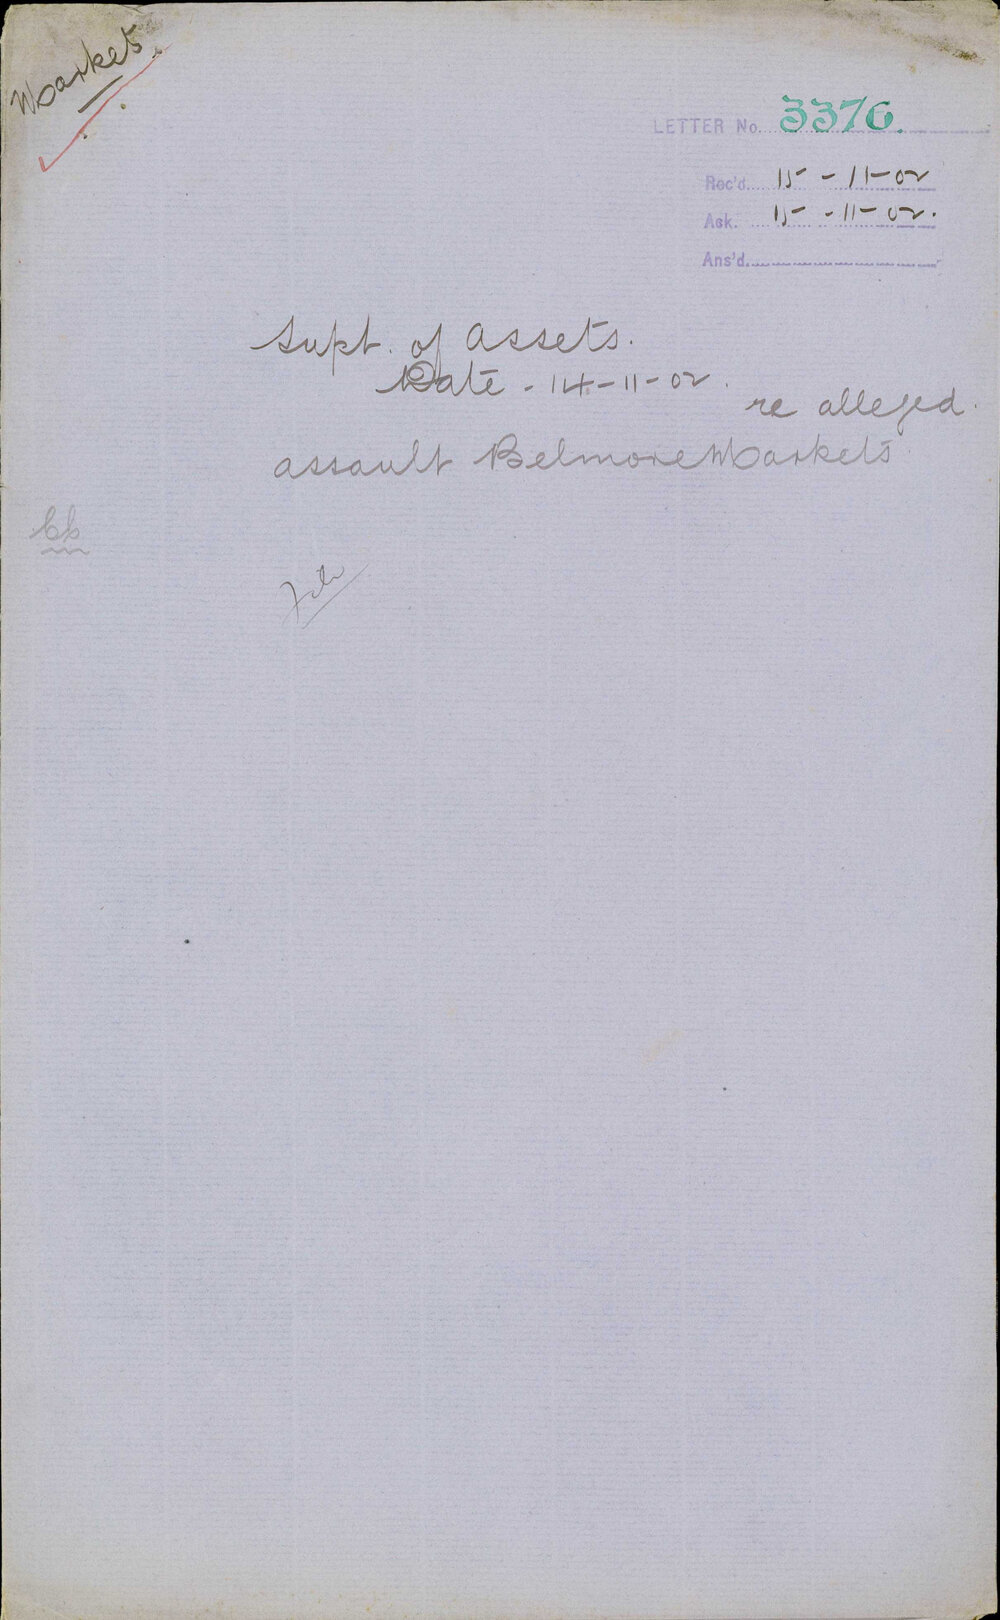 Market.
LETTER No. 3376.
Rec'd. 15-11-02
Ack. 15-11-02.
Ans'd.
Supt. of Assets.
Date - 14-11-02.
re alleged
assault Belmore Markets
File